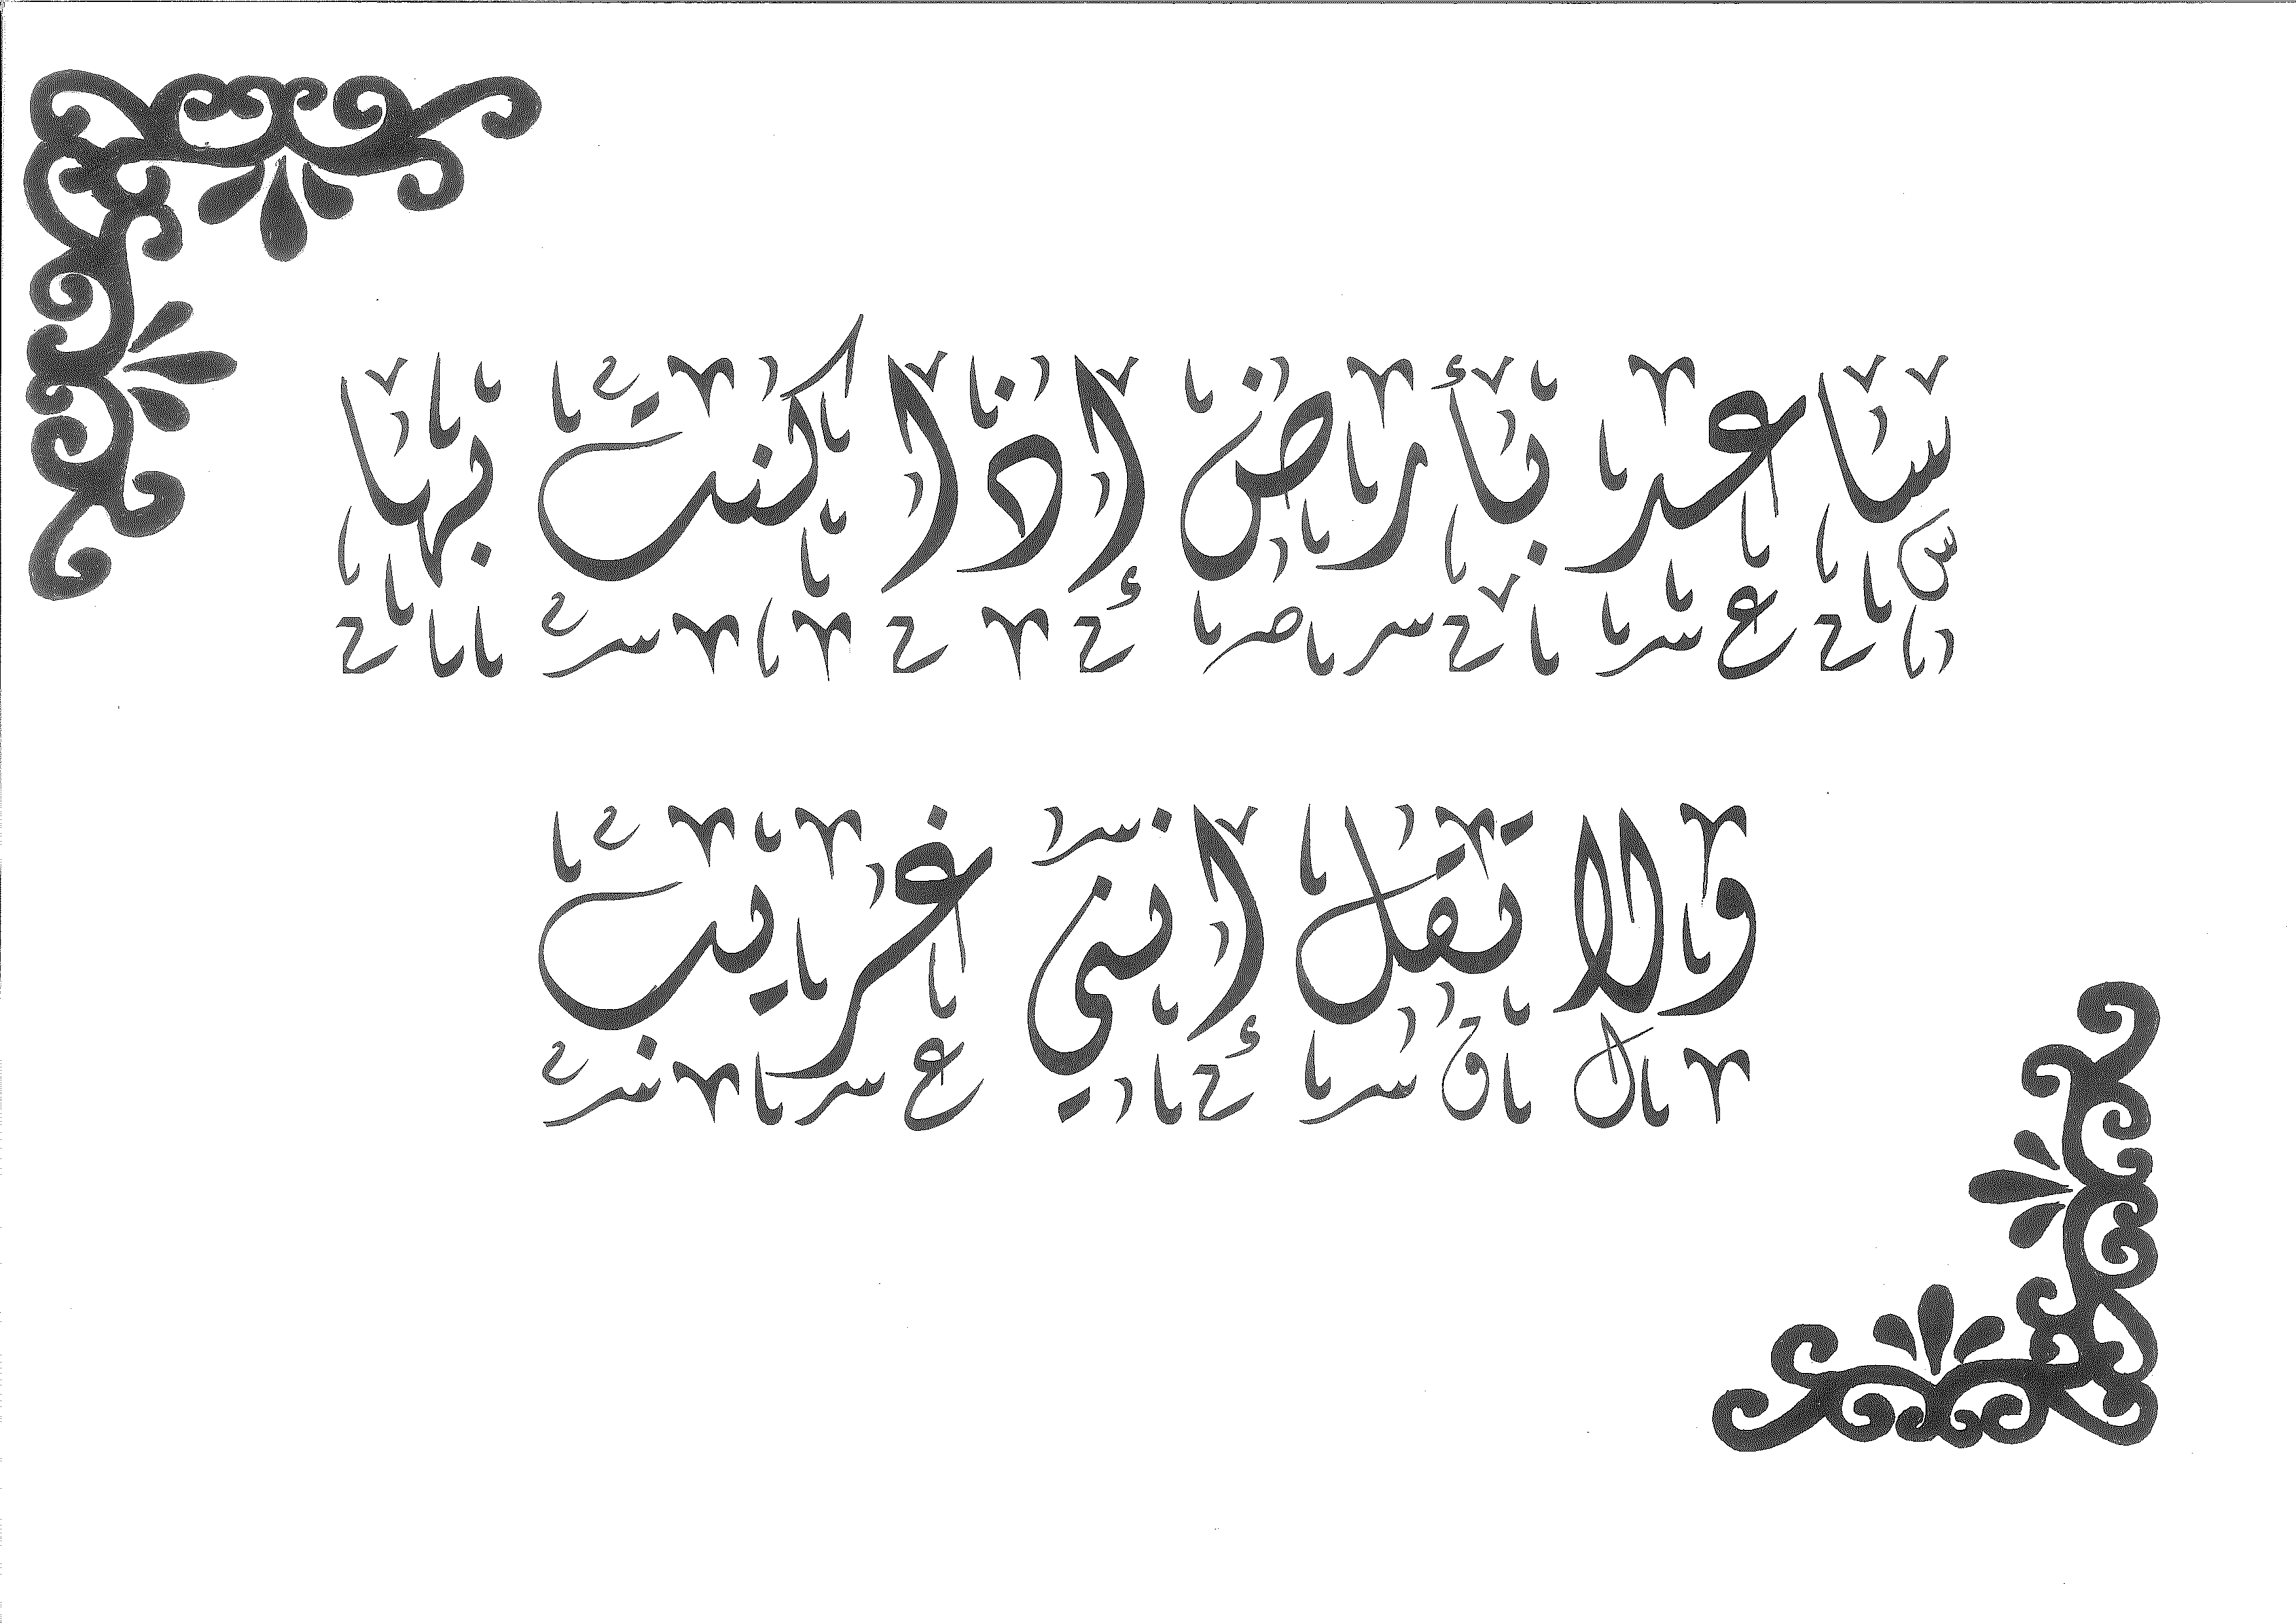 ساعد بأرض إذا كنت بها
ولا تقل انني غريب